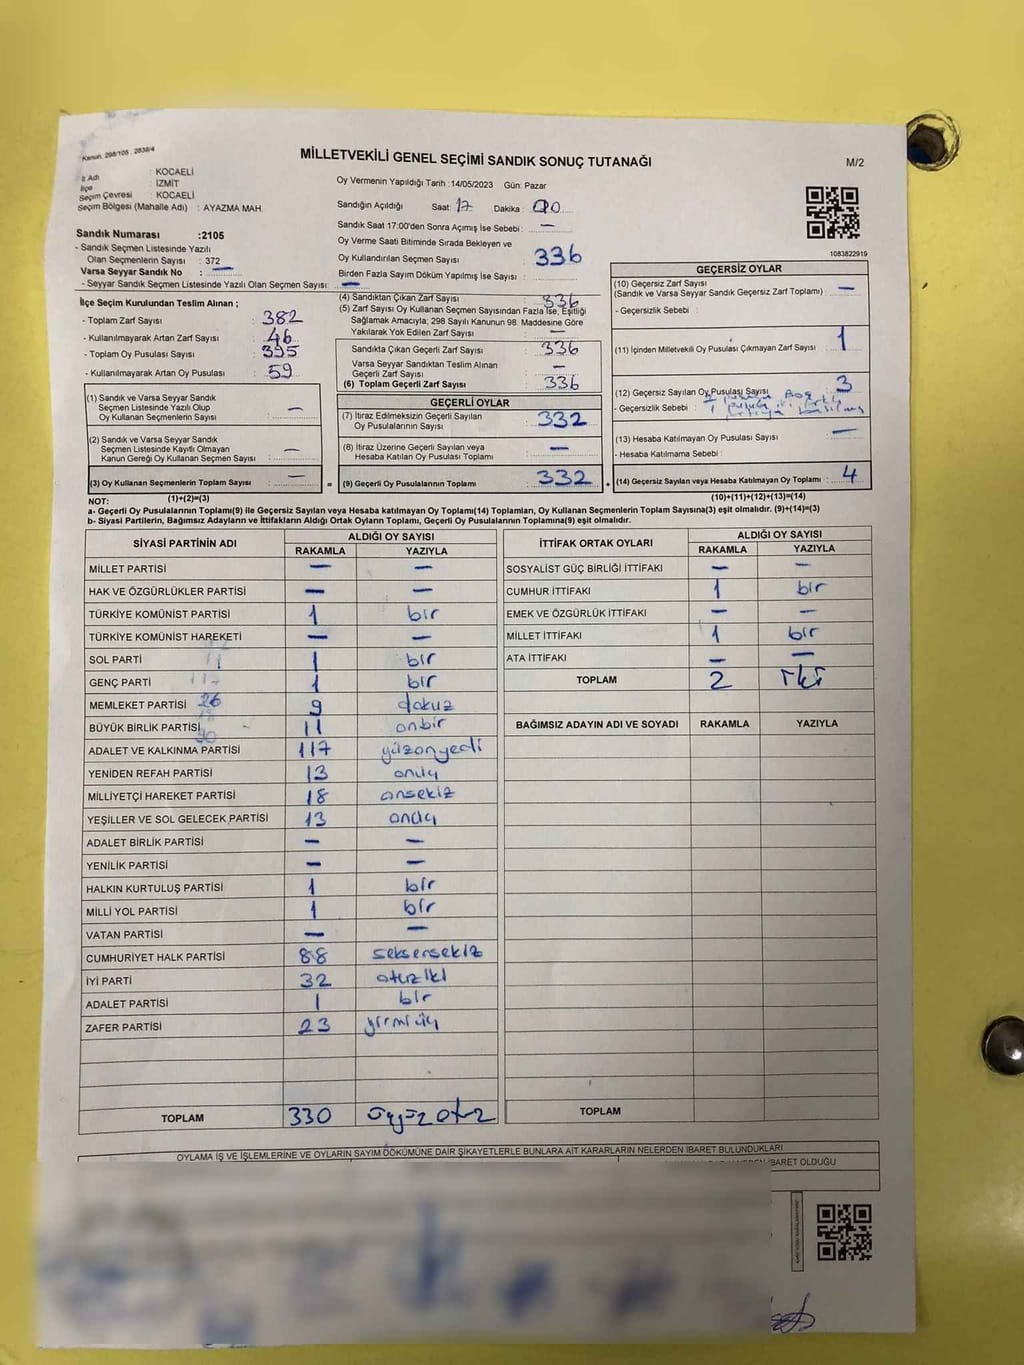 Kanun, 298/105 . 2839/4
MİLLETVEKİLİ GENEL SEÇİMİ SANDIK SONUÇ TUTANAĞI
M/2
İl Adı KOCAELİ
İlçe İZMİT
Seçim Çevresi KOCAELİ
Seçim Bölgesi (Mahalle Adı) : AYAZMA MAH.
Sandık Numarası :2105
- Sandık Seçmen Listesinde Yazılı
Olan Seçmenlerin Sayısı : 372
Varsa Seyyar Sandık No : —
- Seyyar Sandık Seçmen Listesinde Yazılı Olan Seçmen Sayısı: —
Oy Vermenin Yapıldığı Tarih :14/05/2023 Gün: Pazar
Sandığın Açıldığı Saat: 17 Dakika : 00
Sandık Saat 17:00'den Sonra Açımış İse Sebebi : —
Oy Verme Saati Bitiminde Sırada Bekleyen ve
Oy Kullandırılan Seçmen Sayısı : 336
Birden Fazla Sayım Döküm Yapılmış İse Sayısı :
1083822919
İlçe Seçim Kurulundan Teslim Alınan ;
- Toplam Zarf Sayısı : 382
- Kullanılmayarak Artan Zarf Sayısı : 46
- Toplam Oy Pusulası Sayısı : 395
- Kullanılmayarak Artan Oy Pusulası : 59
(1) Sandık ve Varsa Seyyar Sandık
Seçmen Listesinde Yazılı Olup
Oy Kullanan Seçmenlerin Sayısı : —
(2) Sandık ve Varsa Seyyar Sandık
Seçmen Listesinde Kayıtlı Olmayan
Kanun Gereği Oy Kullanan Seçmen Sayısı : —
(3) Oy Kullanan Seçmenlerin Toplam Sayısı : —
(4) Sandıktan Çıkan Zarf Sayısı : 336
(5) Zarf Sayısı Oy Kullanan Seçmen Sayısından Fazla İse, Eşitliği
Sağlamak Amacıyla; 298 Sayılı Kanunun 98. Maddesine Göre
Yakılarak Yok Edilen Zarf Sayısı : —
Sandıkta Çıkan Geçerli Zarf Sayısı : 336
Varsa Seyyar Sandıktan Teslim Alınan
Geçerli Zarf Sayısı : —
(6) Toplam Geçerli Zarf Sayısı : 336
GEÇERLİ OYLAR
(7) İtiraz Edilmeksizin Geçerli Sayılan
Oy Pusulalarının Sayısı : 332
(8) İtiraz Üzerine Geçerli Sayılan veya
Hesaba Katılan Oy Pusulası Toplamı : —
= (9) Geçerli Oy Pusulalarının Toplamı : 332 +
GEÇERSİZ OYLAR
(10) Geçersiz Zarf Sayısı
(Sandık ve Varsa Seyyar Sandık Geçersiz Zarf Toplamı) : —
- Geçersizlik Sebebi :
(11) İçinden Milletvekili Oy Pusulası Çıkmayan Zarf Sayısı : 1
(12) Geçersiz Sayılan Oy Pusulası Sayısı : 3
- Geçersizlik Sebebi :
(13) Hesaba Katılmayan Oy Pusulası Sayısı : —
- Hesaba Katılmama Sebebi :
(14) Geçersiz Sayılan veya Hesaba Katılmayan Oy Toplamı : 4
NOT: (1)+(2)=(3) (10)+(11)+(12)+(13)=(14)
a- Geçerli Oy Pusulalarının Toplamı(9) ile Geçersiz Sayılan veya Hesaba Katılmayan Oy Toplamı(14) Toplamları, Oy Kullanan Seçmenlerin Toplam Sayısına(3) eşit olmalıdır. (9)+(14)=(3)
b- Siyasi Partilerin, Bağımsız Adayların ve İttifakların Aldığı Ortak Oyların Toplamı, Geçerli Oy Pusulalarının Toplamına(9) eşit olmalıdır.
SİYASİ PARTİNİN ADI ALDIĞI OY SAYISI
RAKAMLA YAZIYLA
MİLLET PARTİSİ — —
HAK VE ÖZGÜRLÜKLER PARTİSİ — —
TÜRKİYE KOMÜNİST PARTİSİ 1 bir
TÜRKİYE KOMÜNİST HAREKETİ — —
SOL PARTİ 1 bir
GENÇ PARTİ 117 1 bir
MEMLEKET PARTİSİ 26 9 dokuz
BÜYÜK BİRLİK PARTİSİ 11 onbir
ADALET VE KALKINMA PARTİSİ 117 yüzonyedi
YENİDEN REFAH PARTİSİ 13 onüç
MİLLİYETÇİ HAREKET PARTİSİ 18 onsekiz
YEŞİLLER VE SOL GELECEK PARTİSİ 13 onüç
ADALET BİRLİK PARTİSİ — —
YENİLİK PARTİSİ — —
HALKIN KURTULUŞ PARTİSİ 1 bir
MİLLİ YOL PARTİSİ 1 bir
VATAN PARTİSİ — —
CUMHURİYET HALK PARTİSİ 88 seksensekiz
İYİ PARTİ 32 otuziki
ADALET PARTİSİ 1 bir
ZAFER PARTİSİ 23 yirmiüç
TOPLAM 330 üçyüzotuz
İTTİFAK ORTAK OYLARI ALDIĞI OY SAYISI
RAKAMLA YAZIYLA
SOSYALİST GÜÇ BİRLİĞİ İTTİFAKI — —
CUMHUR İTTİFAKI 1 bir
EMEK VE ÖZGÜRLÜK İTTİFAKI — —
MİLLET İTTİFAKI 1 bir
ATA İTTİFAKI — —
TOPLAM 2 iki
BAĞIMSIZ ADAYIN ADI VE SOYADI RAKAMLA YAZIYLA
TOPLAM
OYLAMA İŞ VE İŞLEMLERİNE VE OYLARIN SAYIM DÖKÜMÜNE DAİR ŞİKAYETLERLE BUNLARA AİT KARARLARIN NELERDEN İBARET BULUNDUKLARI
İBARET OLDUĞU